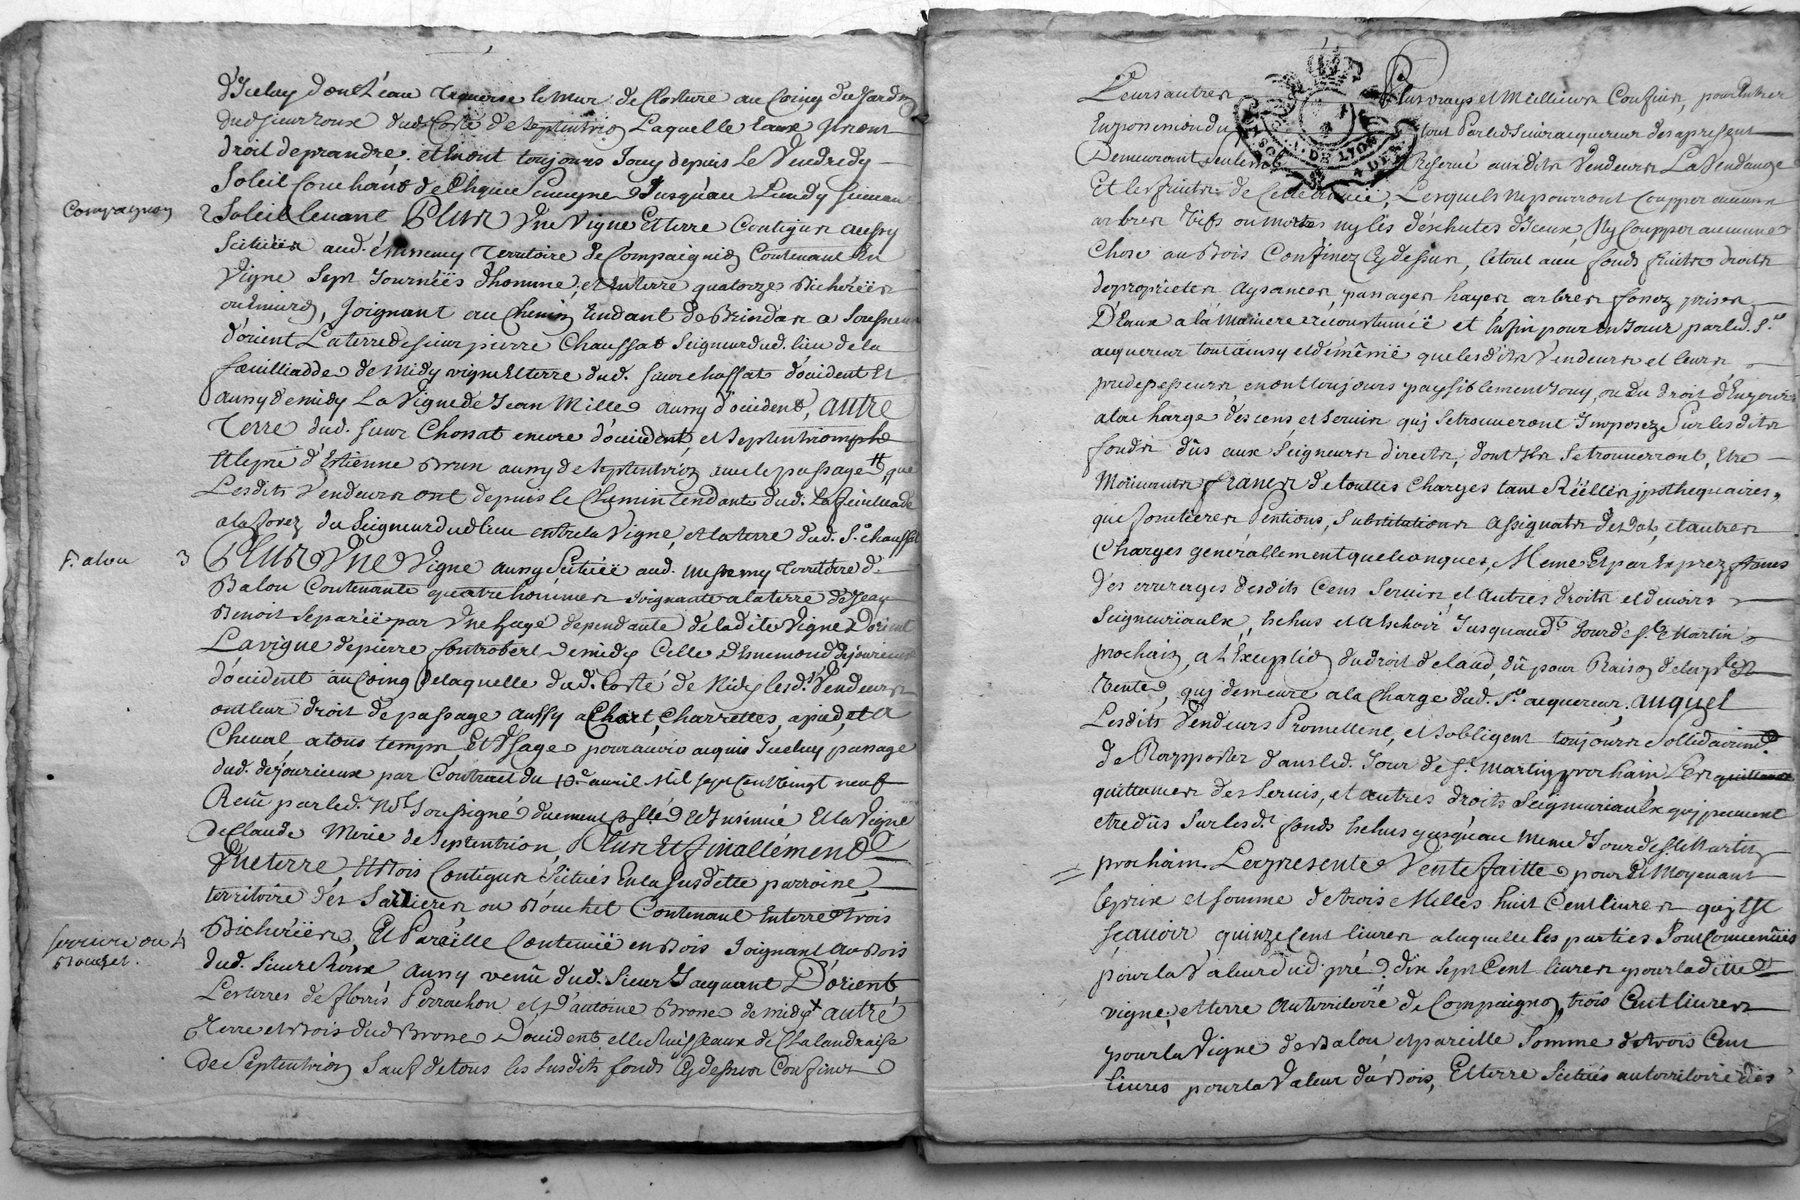 d'Iceluy dont L'eau traverse le mur de Cloture au Coing du Jardin
dud sieur roux du Costé de Septentrion Laquelle Eaux Ils ont
droit de prandre, et En ont toujours Jouy depuis Le Vendredy
Soleil Couchant de Chaque Semayne Jusqu'au Lundy
Compagnon 2 Soleil levant Plus Une Vigne Et terre Contigus aussy
Scituées aud. territoire de Compaignion Contenant En
Vigne Sept Journéës d'homme, et En terre quatorze Bicheréës
ou Environ, Joignant au Chemin tendant de Brindas a
d'orient La terre de sieur pierre Chaussat Seigneur dud. lieu de la
feuilliadde de midy vigne Et terre dud. sieur Chassat d'ocident Et
aussy de midy La Vigne de Jean Mille aussy d'ocident, autre
Terre dud. sieur Chossat encore d'ocident, et Septentrion
Et le pré d'Estienne Brun aussy de Septentrion avec le passage que
Lesdits Vendeurs ont depuis le Chemin tendant dud. La feuilliade
a la forez du Seigneur dud lieu entre la Vigne, et la terre dud. Sr. Chaussat
F. alou 3 Plus Une Vigne aussy Scituéë aud. territoire de
Balou Contenante quatre hommes Joignante a la terre de Jean
Benoit Separéë par Une haye dependante de ladite Vigne D'orient
La vigne de pierre de midy Celle d'Ennemond dejourieux
d'ocident au Coing de laquelle du d. Costé de Midy lesd. Vendeurs
ont leur droit de passage aussy a Chart, Charrettes, a pied, et a
Cheval, a tous temps Et Usage, pour avoir acquis Iceluy passage
dud. dejourieux par Contract du 10e. avril Mil sept Cent Vingt neuf
Receu par led. Nore. Soussigné duement Collé. Et Insinué Et la Vigne
de Claude Merie de Septentrion, Plus Et finallement
Une terre, Et Bois Contigus Scitués En la Susditte parroisse,
territoire des ou Bouchet Contenant En terre trois
Bicheréës, Et Pareille Contenuë en Bois Joignant au Bois
ou 4
Bouchet.
dud. Sieur roux aussy venu dud. Sieur Jacquant D'orient
Les terres de floris Perrachon et d'antoine Brosse de midy autre
Terre et Bois dud Brosse D'ocident, et le Ruisseaux de Chalandraise
de Septentrion Sauf de tous les susdits fonds Cy dessus Confinez
Leurs autres Plus vrays et Meilleurs Confins, pour Entrer
En possession du tout Par led Sieur acquereur des a present
Demeurant seulement Reservé auxdits Vendeurs La Vendange
Et les fruits de Cette Année, Lesquels Ne pourront Coupper aucuns
arbres Vifs ou morts ny les d'eux, Ny Coupper aucune
Chose au Bois Confinez Cy dessus, le tout avec fonds fruits droits
de proprietes aysances, passages hayes arbres fossez prises
D'Eaux a la Maniere accoustuméë et Enfin pour En Jouir par led. Sr.
acquereur tout ainsy et de mêmë que lesdits Vendeurs et leurs
predecesseurs en ont toujours paysiblement Jouy, ou du droit d'En jouir
a la Charge des cens et servis quj se trouveront Imposez Sur lesdits
fonds dûs aux Seigneurs directs, dont Ils se trouverront, Etre
Mouvants francs de touttes Charges tant Réëlles jpothequaires,
que foncieres Pentions, Substitutions assignats et autres
Charges generallement quelconques, Meme Et par Exprez francs
des arrerages desdits Cens Servis et autres droits et devoirs
Seigneuriaulx, Echus et a Echoir Jusqu'aud. Jour de ste Martin
prochain, a L'Exception du droit de laud, dû pour Raison de la psnte
Vente, quj demeure a la Charge dud. Sr. acquereur, auquel
Lesdits Vendeurs Promettent, et s'obligent toujours Sollidairemt.
de Rapporter dans led. Jour de St. Martin prochain Les
quittances des Servis, et autres droits Seigneuriaulx quj peuvent
etre dûs Sur lesd. fonds Echus jusqu'au Meme Jour de st. Martin
prochain. La presente Vente faitte pour Et Moyenant
le prix et somme de trois Milles huit Cent livres quj Est
sçavoir quinze Cent livres a laquelle les parties sont Convenuës
pour la Valeur dud. pré, dix sept Cent livres pour laditte
vigne, et terre au territoire de Compaignon, trois Cent livres
pour la Vigne de Balou et pareille Somme de trois Cent
livres pour la Valeur du Bois, Et terre Scitués au territoire des